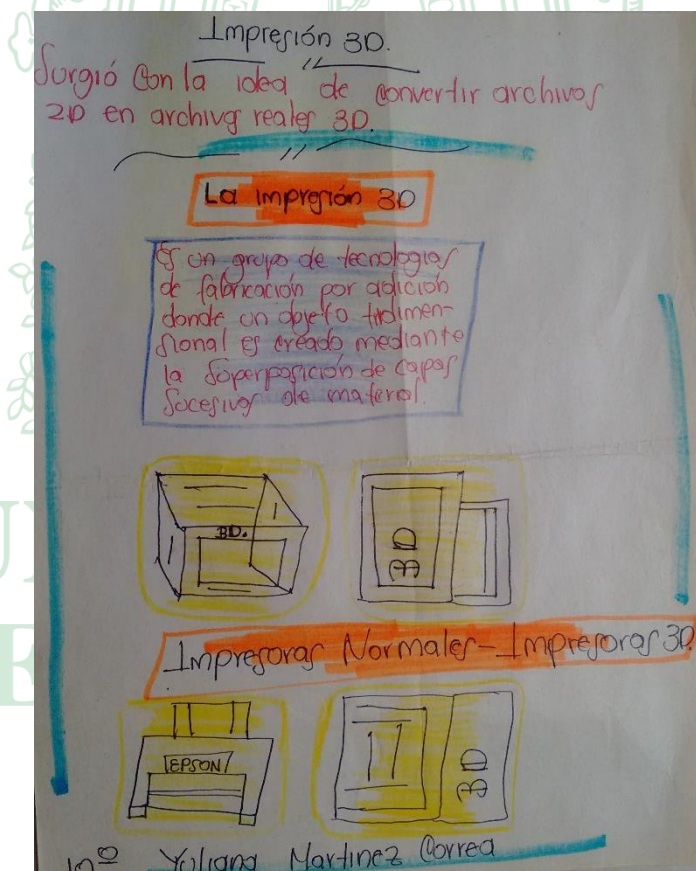 Impresión 3D.
Surgió con la idea de convertir archivos
2D en archivos reales 3D.
La impresión 3D
Es un grupo de tecnologias
de fabricación por adición
donde un objeto tridimen-
sional es creado mediante
la superposición de capas
sucesivas de material.
3D.
3D
Impresoras Normales - Impresoras 3D
EPSON
3D
10º Yuliana Martinez Correa